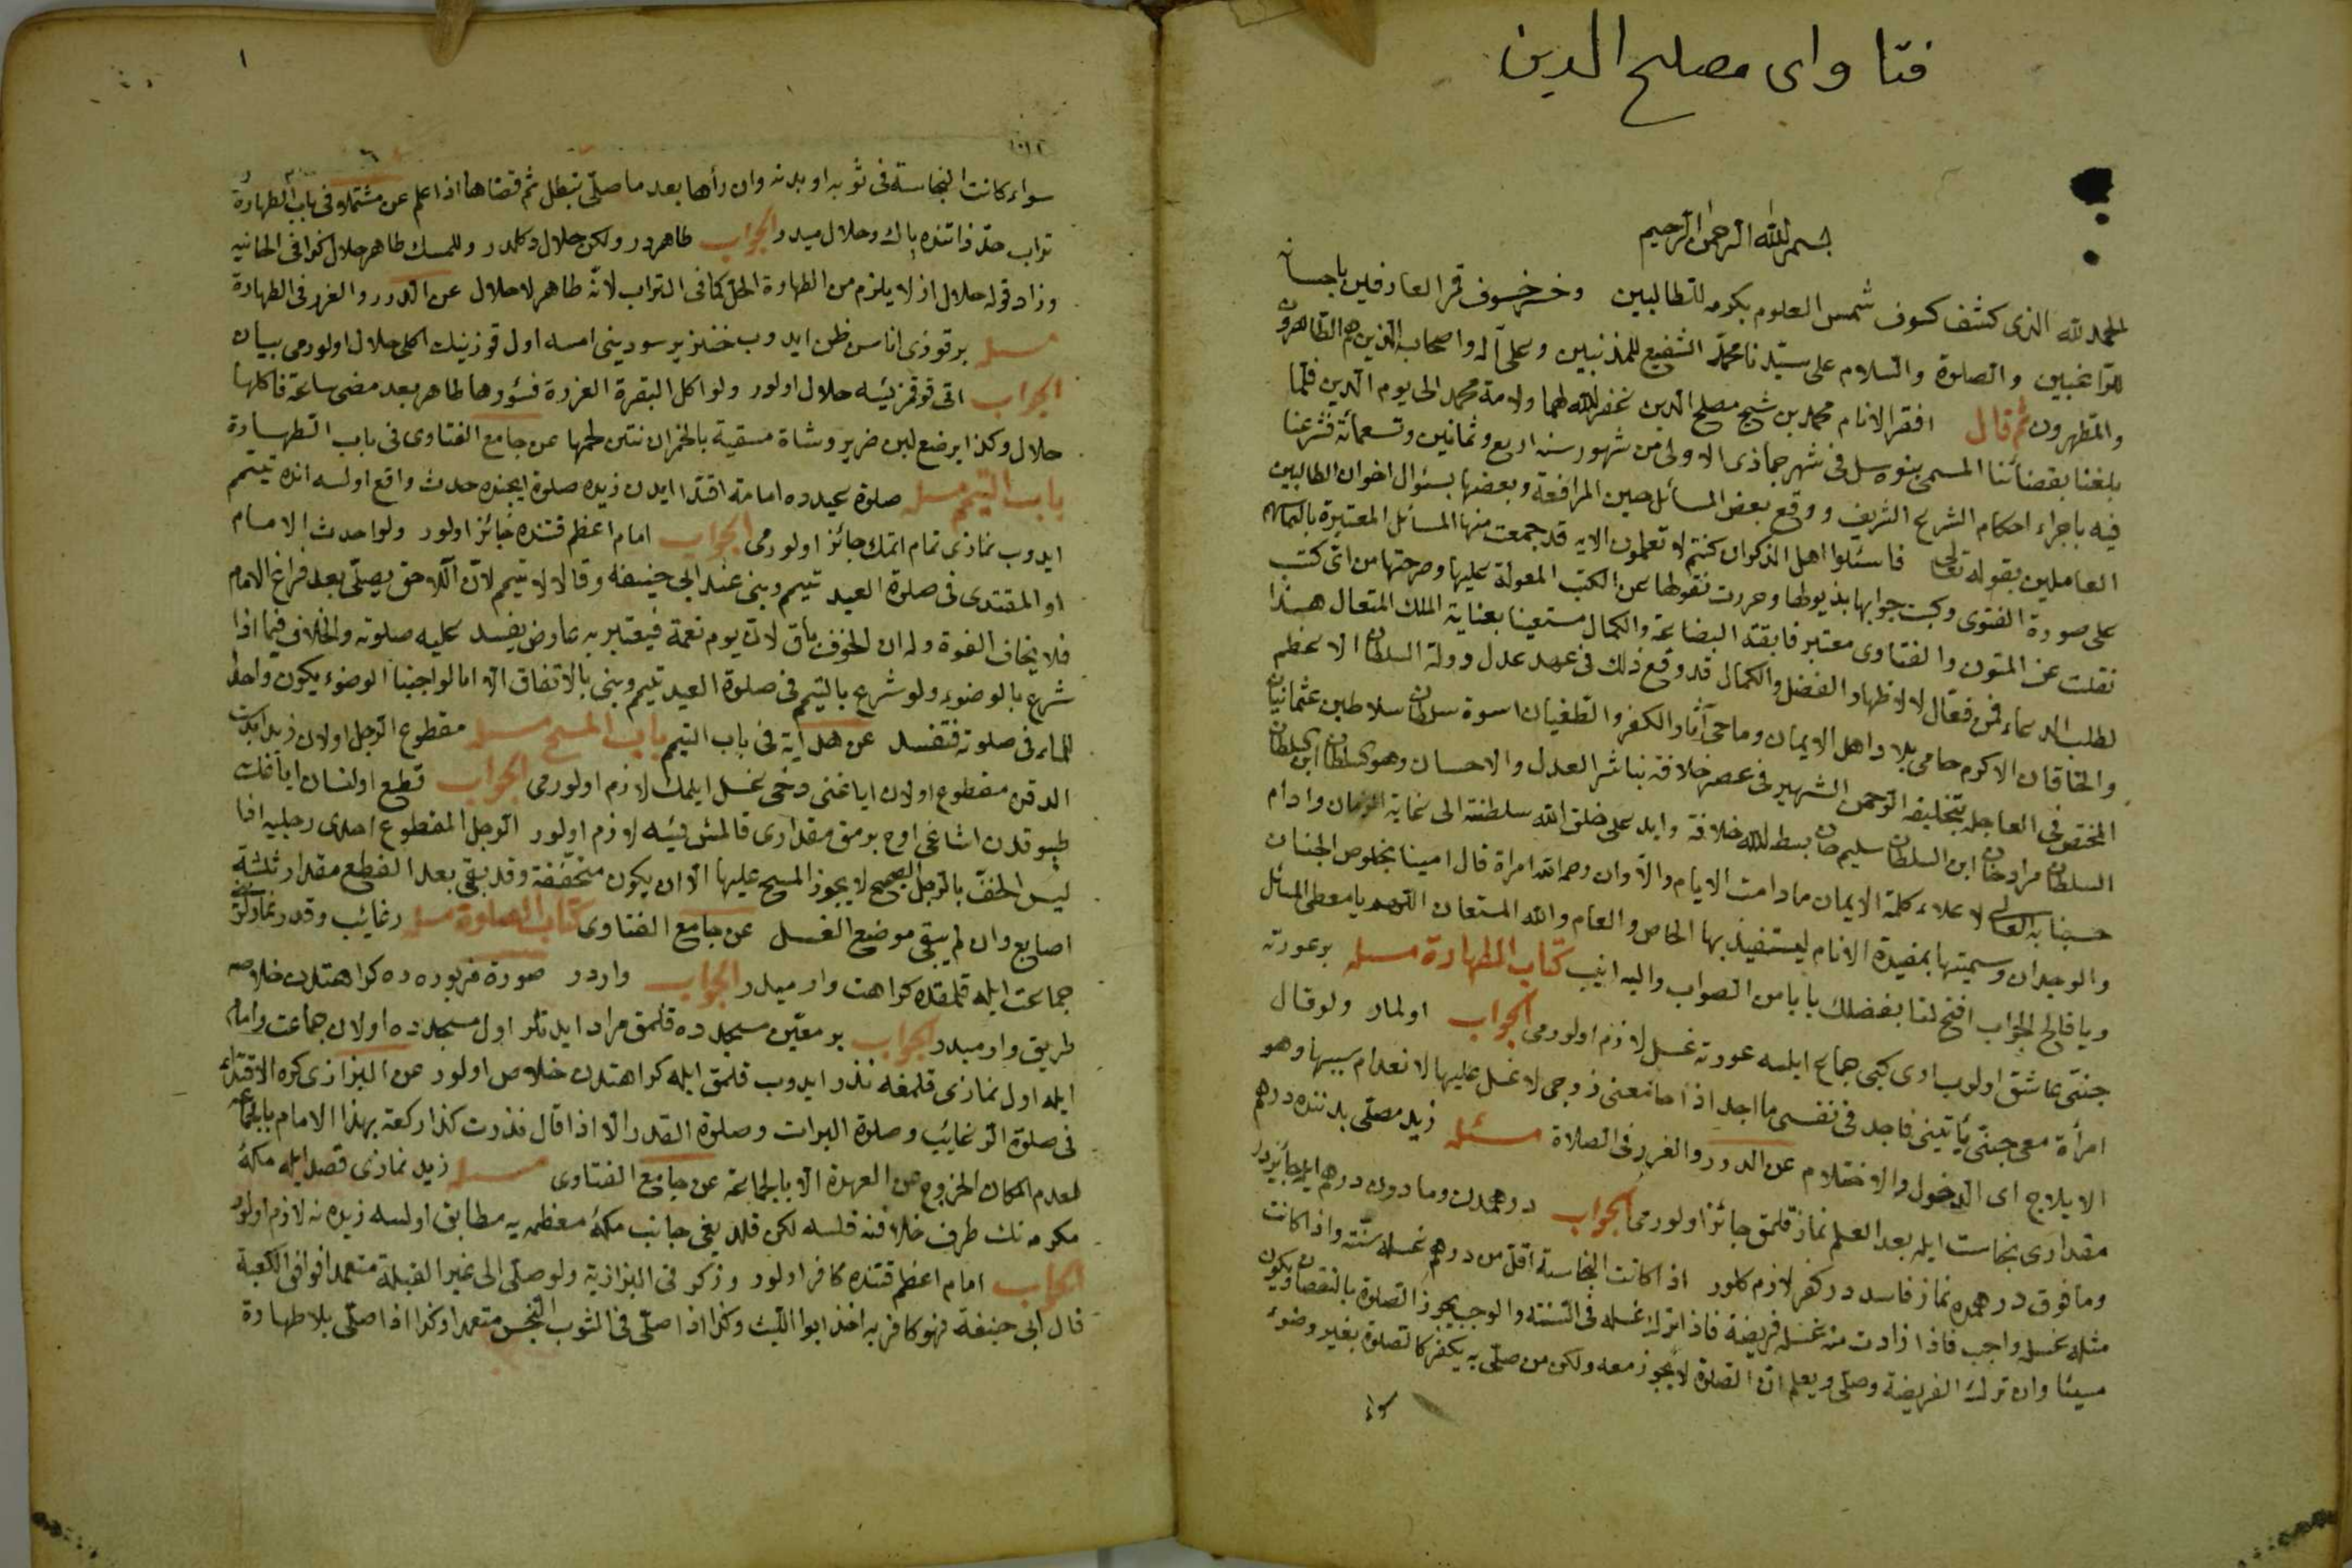 فتاوای مصلح الدین
بسم الله الرحمن الرحیم
الحمد لله الذی کشف کسوف شمس العلوم بکرمه للطالبین وخسوف قمر العارفین باحسانه
للراغبین والصلوة والسلام علی سیدنا محمد الشفیع للمذنبین وعلی آله واصحابه الذین هم الطاهرون
والمتطهرون ثم قال افقر الانام محمد بن شیخ مصلح الدین غفر الله لهما ولامة محمد الی یوم الدین فلما
بلغنا بقضائنا المسمی بنوه سل فی شهر جماذی الاولی من شهور سنه اربع وثمانین وتسعمائة فشرعنا
فیه باجراء احکام الشرع الشریف ووقع بعض المسائل حین المرافعة وبعضها بسئوال اخوان الطالبین
العاملین بقوله تعالی فاسئلوا اهل الذکر ان کنتم لا تعلمون الایه قد جمعت منها المسائل المعتبرة بالتمامه
علی صورة الفتوی وکتبت جوابها بذیولها وحررت نقولها عن الکتب المعولة علیها وصرحتها من ای کتب
نقلت عن المتون والفتاوی معتبر فابقت البضاعة والکمال مستعینا بعنایة الملک المتعال هذا
لطلب الدعاء فمن فقال لا لاظهار الفضل والکمال قد وقع ذلک فی عهد عدل دولة السلطان الاعظم
والخاقان الاکرم حامی بلاد اهل الایمان وماحی آثار الکفر والطغیان اسوة سلطان سلاطین عثمانیان
المختص فی العاجله بتخلیفه الرحمن الشهیر فی عصر خلافته بناشر العدل والاحسان وهو السلطان ابن السلطان
السلطان مراد خان ابن السلطان سلیم خان بسط الله خلافة واید علی خلق الله سلطنته الی نهایة الزمان وادام
لاعلاء کلمة الایمان ما دامت الایام والاوان رحم الله امرأة قال امینا بخلوص الجنان
والوجدان وسمیتها بمفیدة الانام لیستفید بها الخاص والعام والله المستعان یا معطی المسائل
ویا فاتح الجواب افتح لنا بفضلک بابا من الصواب والیه انیب کتاب الطهارة مسئله بر عورته
جنی عاشق اولوب اری کبی جماع ایلسه عورته غسل لازم اولورمی الجواب اولماز ولو قال
امرأة معی جنی یأتینی فاجد فی نفسی ما اجد اذا جامعنی زوجی لا غسل علیها لانعدام سببها وهو
الایلاج ای الدخول والاحتلام عن الدرر والغرر فی الصلاة مسئله زید مصلی بدننده درهم
مقداری نجاست ایله بعد العلم نماز قلمق جائز اولورمی الجواب درهمدن وما دون درهم ایله جائزدر
وما فوق درهمده نماز فاسددر کفر لازم کلور اذا کانت النجاسة اقل من درهم غسله سنته واذا کانت
مثله غسله واجب فاذا زادت منه غسله فریضة فاذا ترک غسله فی السنته والوجب یجوز الصلوة بالنقصان ویکون
مسیئا وان ترک الفریضة وصلی ویعلم ان الصلوة لا یجوز معه ولکن من صلی به یکفر کالصلوة بغیر وضوء
سواء
۱
سواء کانت النجاسة فی ثوبه او بدنه وان رأها بعد ما صلی تبطل ثم قضاها اذا علم عن مشتملو فی باب الطهارة
تراب حد ذاتنده پاک وحلال میدر الجواب طاهردر ولکن حلال دکلدر وللمسک طاهر حلال کذا فی الخانیه
وزاد قوله حلال اذ لا یلزم من الطهارة الحل کما فی التراب لانه طاهر لا حلال عن الدرر والغرر فی الطهارة
مسئله بر قوزی اناسن ظن ایدوب خنزیر سودینی امسه اول قوزینک اکلی حلال اولورمی بیان
الجواب حلال اولور ولو اکل البقرة العزرة فسؤرها طاهر بعد مضی ساعة فاکلها
حلال وکذا یرضع لبن خنزیر وشاة مسقیة بالخمر ان نتن لحمها عن جامع الفتاوی فی باب الطهارة
باب التیمم مسئله صلوة عیدده امامه اقتدا ایدن زیده صلوة ایچنده حدث واقع اولسه انده تیمم
ایدوب نمازی تمام اتمک جائز اولورمی الجواب امام اعظم قتنده جائز اولور ولو احدث الامام
او المقتدی فی صلوة العید تیمم وبنی عند ابی حنیفه وقالا لا تیمم لان اللاحق یصلی بعد فراغ الامام
فلا یخاف الفوة وله ان الخوف باق لان یوم زحمة فیعتبر به عارض یفسد علیه صلوته والخلاف فیما اذا
شرع بالوضوء ولو شرع بالتیمم فی صلوة العید تیمم وبنی بالاتفاق الا انا لو اجبنا الوضوء یکون واجدا
للماء فی صلوته فتفسد عن هدایة فی باب التیمم باب المسح مسئله مقطوع الرجل اولان زید ابدست
الدقن مقطوع اولان ایاغنی دخی غسل ایلمک لازم اولورمی الجواب قطع اولنسان ایاغک
طپوقدن اشاغی اوچ برمق مقداری قالمش ایسه لازم اولور الرجل المقطوع احدی رجلیه اذا
لیس الخف بالرجل الصحیح لا یجوز المسح علیها الا ان یکون متخففة وقد بقی بعد القطع مقدار ثلثة
اصابع وان لم یبق موضع الغسل عن جامع الفتاوی کتاب الصلوة مسئله رغائب وقدر نمازلرن
جماعت ایله قلمقده کراهت وار میدر الجواب واردر صورة مزبوره ده کراهتدن خلاصه
طریق وار میدر الجواب بر معین مسجدده قلمق مراد ایدنلر اول مسجدده اولان جماعت وامام
ایله اول نمازی قلمغه نذر ایدوب قلمق ایله کراهتدن خلاص اولور عن البزازی کره الاقتداء
فی صلوة الرغایب وصلوة البرات وصلوة القدر الا اذا قال نذرت کذا رکعة بهذا الامام بالجماعه
لعدم امکان الخروج عن العهدة الا بالجماعة عن جامع الفتاوی مسئله زید نمازی قصد ایله مکهٔ
مکرمه نک طرف خلافنه قلسه لکن قلدیغی جانب مکهٔ معظمه یه مطابق اولسه زیده نه لازم اولور
الجواب امام اعظم قتنده کافر اولور وذکر فی البزازیة ولو صلی الی غیر القبلة متعمدا فوافق الکعبة
قال ابی حنیفة فهو کافر به اخذ ابو اللیث وکذا اذا صلی فی الثوب النجس متعمدا وکذا اذا صلی بلا طهارة